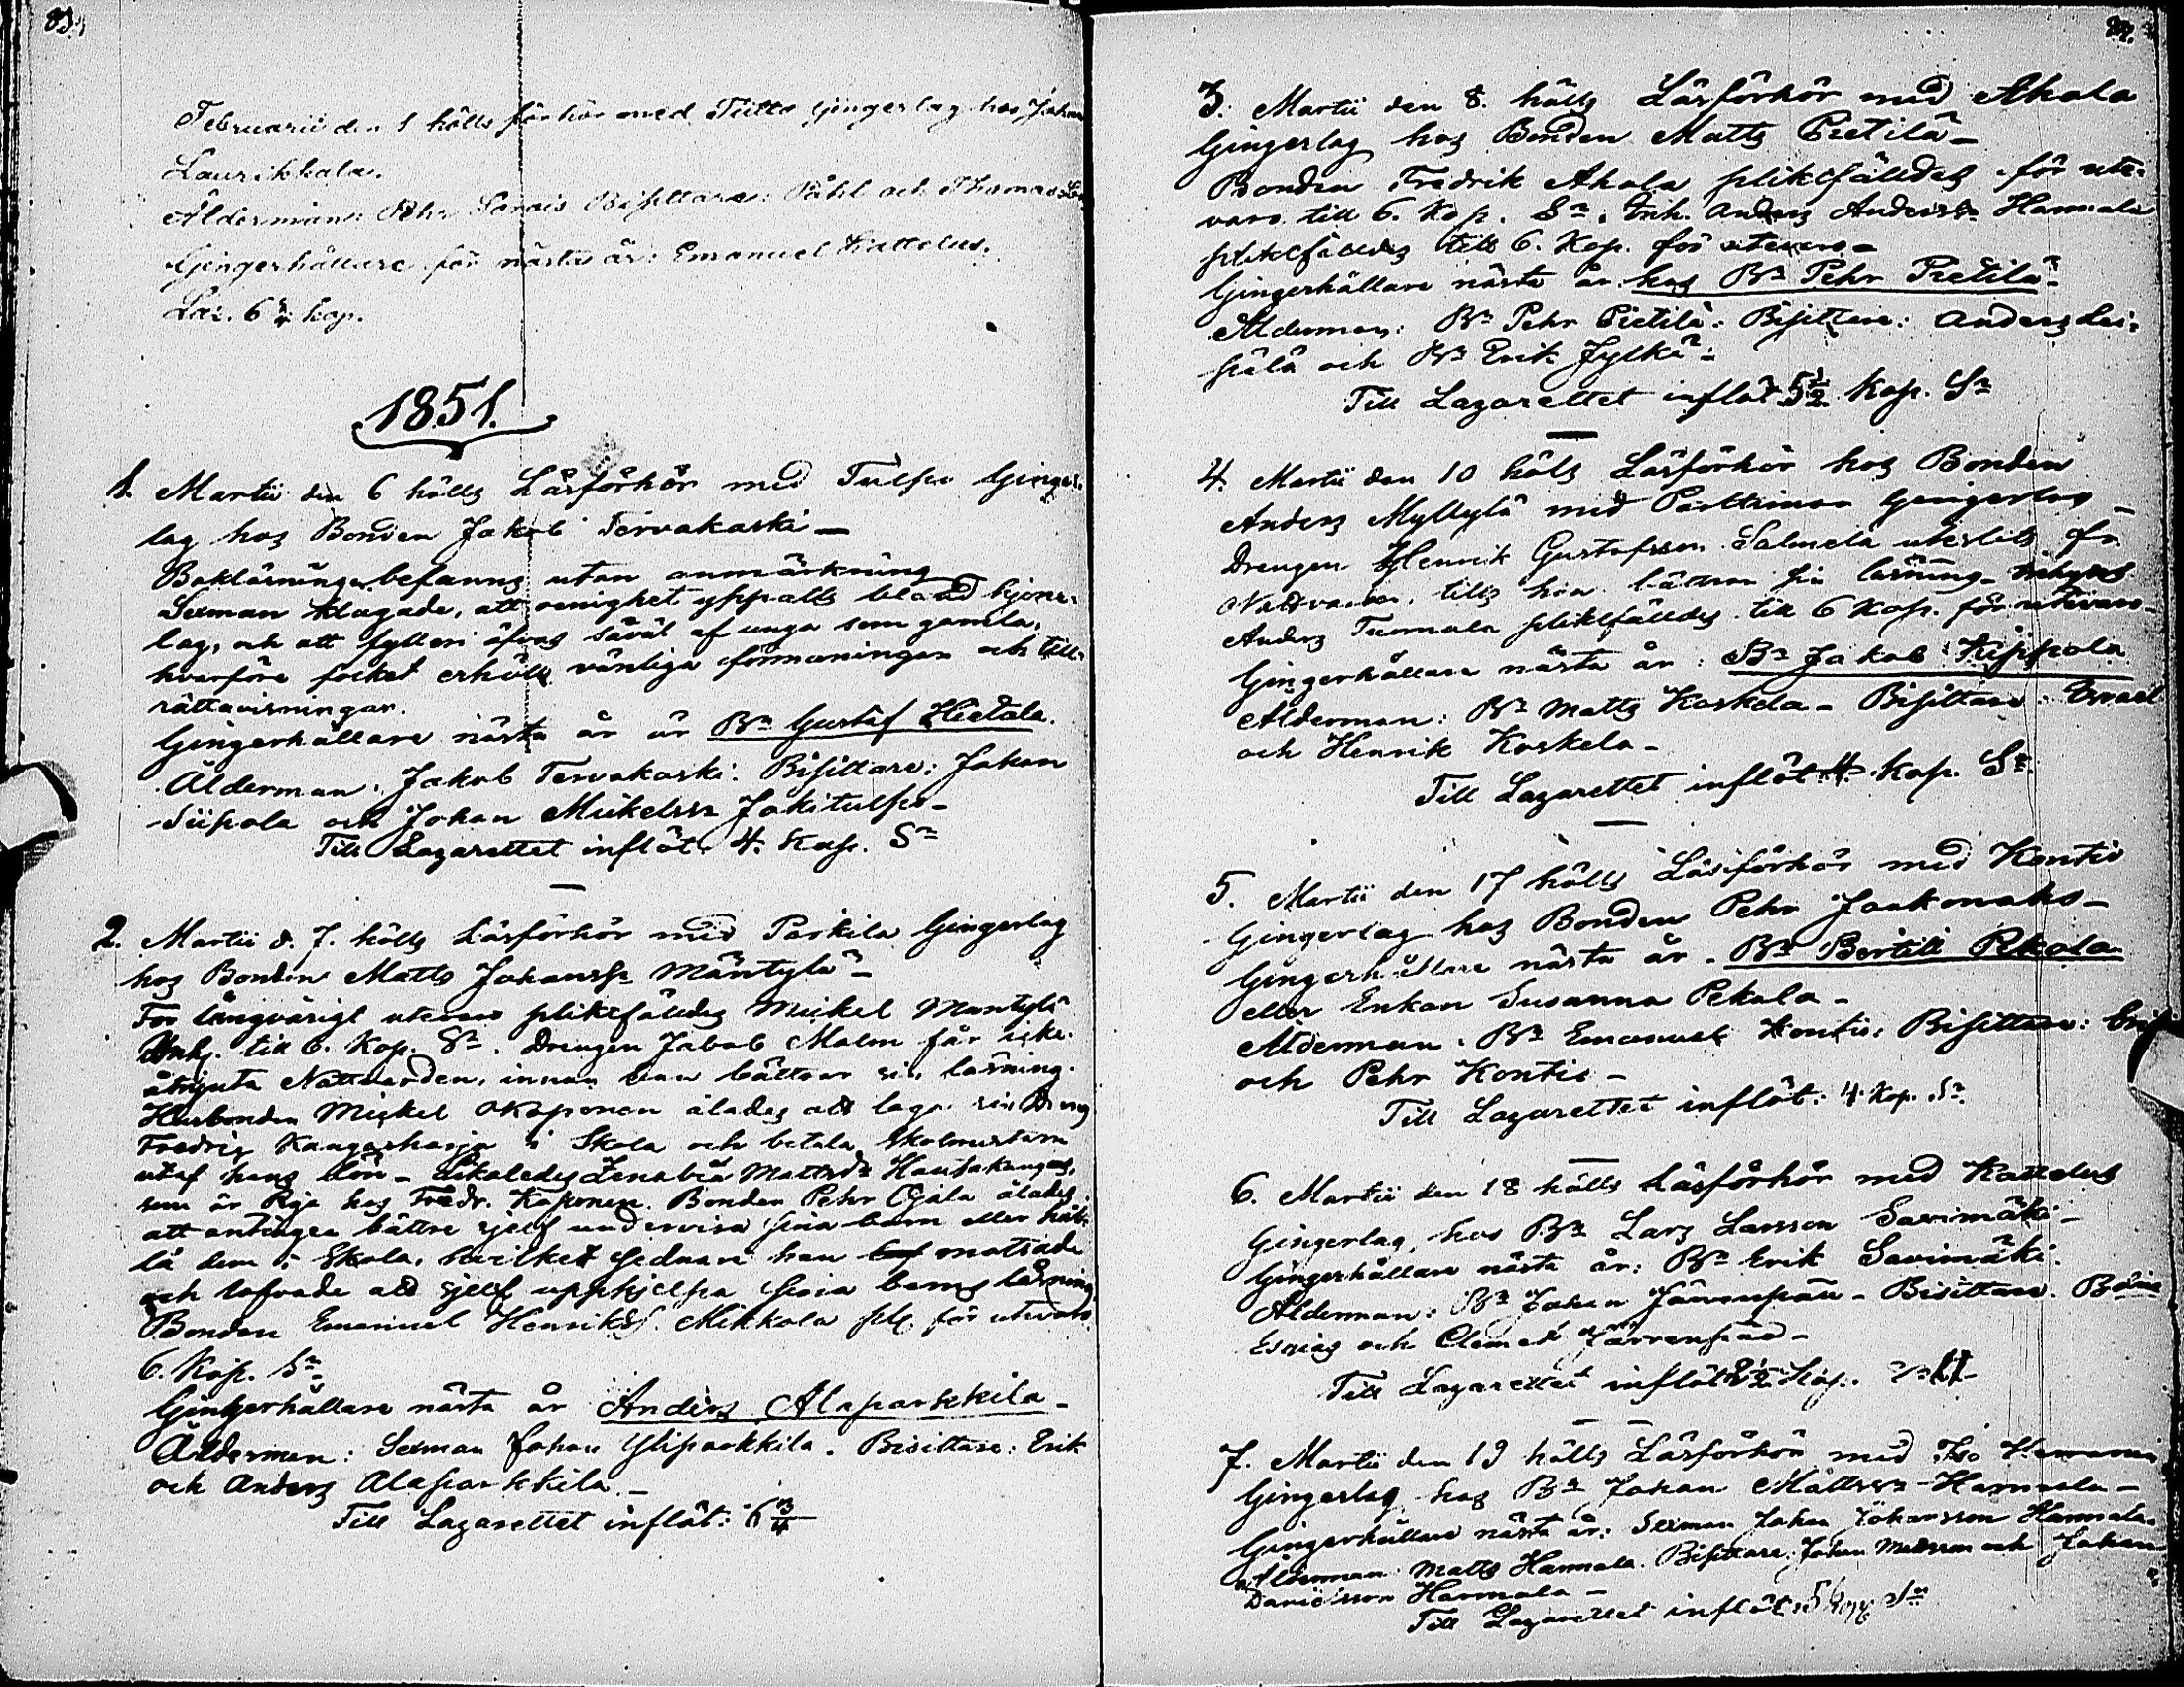 83.
Februarii den 1 hölls förhör med Tiitto Gingerlag hos Johan
Laurikkala.
Ålderman: Pehr Sarais Bisittare: Påhl och Thomas
Gingerhållare för nästa år: Emanuel Kattelus.
Laz. 6 3/4 kop.
1851.
1. Martii den 6 hölls Läsförhör med Tulpo Ginger-
lag hos Bonden Jakob Tervakoski —
Bokläsningen befanns utan anmärkning
Sexman klagade, att oenighet yppats bland hjone-
lag, och att fylleri öfvas såväl af unga som gamla,
hvarföre folket erhöll vänliga förmaningar och till-
rättavisningar.
Gingerhållare nästa år är Bn Gustaf Hietala.
Ålderman: Jakob Tervakoski. Bisittare: Johan
Siipola och Johan Mickelsn Jokitulpo —
Till Lazarettet inflöt. 4. Kop. Sr
2. Martii d. 7. hölls Läsförhör med Parkila Gingerlag
hos Bonden Matts Johanss Mäntylä —
För långvarigt utevaro pliktfälldes Mickel Mäntylä
Inh. till 6. Kop. Sr. Drengen Jakob Malm får icke
åtnjuta Nattvarden, innan han bättrar sin läsning.
Husbonden Mickel Koponen ålades att laga sin Dreng
Fredrig Kangasharju i Skola och betala Skolmästarn
utaf hans lön — Likaledes Zenobia Mattsdr Hautakangas,
som är Piga hos Fredr. Koponen. Bonden Pehr Ojala ålades
att antingen bättre sjelf undervisa sina barn eller hål-
la dem i Skola, hvilket sednare han motsade
och lofvade att sjelf upphjelpa sina barns läsning
Bonden Emanuel Henrikss. Mikkola pl. för utevaro
6. Kop. Sr
Gingerhållare nästa år Anders Alaparkkila —
Ålderman: Sexman Johan Yliparkkila. Bisittare: Erik
och Anders Alaparkkila —
Till Lazarettet inflöt: 6 3/4
3. Martii den 8. hölls Läsförhör med Ahola
Gingerlag hos Bonden Matts Pietilä —
Bonden Fredrik Ahola pliktfälldes för ute-
varo till 6. Kop. Sr. Inh. Anders Anderss Hannala
pliktfälldes till 6. Kop. för utevaro —
Gingerhållare nästa år hos Bn Pehr Pietilä —
Ålderman: Bn Pehr Pietilä: Bisittare: Anders Lei-
pälä och Bn Erik Jylkä —
Till Lazarettet inflöt 5 1/2 Kop. Sr
4. Martii den 10 hölls Läsförhör hos Bonden
Anders Myllylä med Gingerlag —
Drengen Henrik Gustafsson Salmela uteslöts fr.
Nattvarden, tills han bättrar sin läsning.
Anders Tuomala pliktfälldes till 6 Kop. för utevaro —
Gingerhållare nästa år: Bn Jakob Kippola
Ålderman: Bn Matts Koskela — Bisittare: Israel
och Henrik Koskela —
Till Lazarettet inflöt 4. Kop. Sr.
5. Martii den 17 hölls Läsförhör med Kontio
Gingerlag hos Bonden Pehr Jaakonaho —
Gingerhållare nästa år. Bn Bertill Pekola
eller Enkan Susanna Pekola —
Ålderman. Bn Emanuel Kontio: Bisittare: Erik
och Pehr Kontio —
Till Lazarettet inflöt: 4. Kop. Sr.
6. Martii den 18 hölls Läsförhör med Kattelus
Gingerlag, hos Bn Lars Larsson Savimäki —
Gingerhållare nästa år: Bn Erik Savimäki.
Ålderman: Bn Johan Järvenpää — Bisittare.
Esaias och Clemet Järvenpää —
Till Lazarettet inflöt 2 1/2 Kop.
7. Martii den 19 hölls Läsförhör med Iso
Gingerlag hos Bn Johan Mattsson Hannula —
Gingerhållare nästa år: Sexman Johan Johansson Hannula.
Ålderman Matts Hannula. Bisittare: Johan Mattsson och Johan
Danielsson Hannula —
Till Lazarettet inflöt. 5 kop. Sr